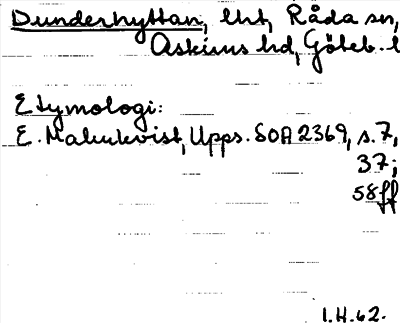 Dunderhyttan, lht, Råda sn,
Askims hd, Göteb. l
Etymologi:
E. Malmkvist, Upps. SOA 2369, s. 7,
37;
58ff
1.H.62.